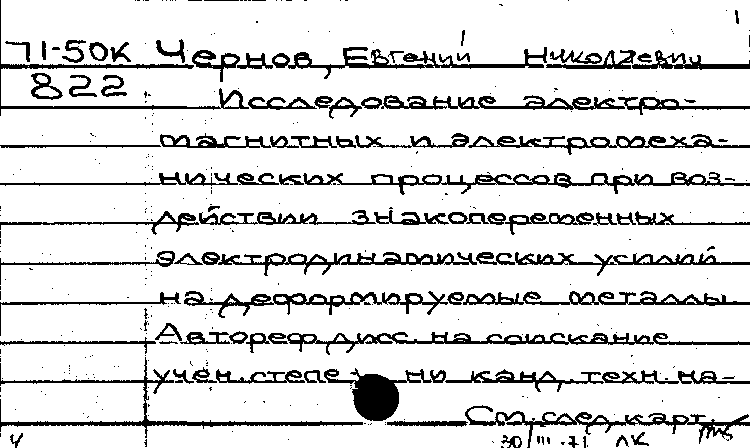 71-50К Чернов, Евгений Николаевич
822 Исследование электро-
магнитных и электромеха-
нических процессов при воз-
действии знакопеременных
электродинамических усилий
на деформируемые металлы
Автореф. дисс. на соискание
учен. степени канд. техн. на-
См. след. карт.
4 30/III-71 ЛК